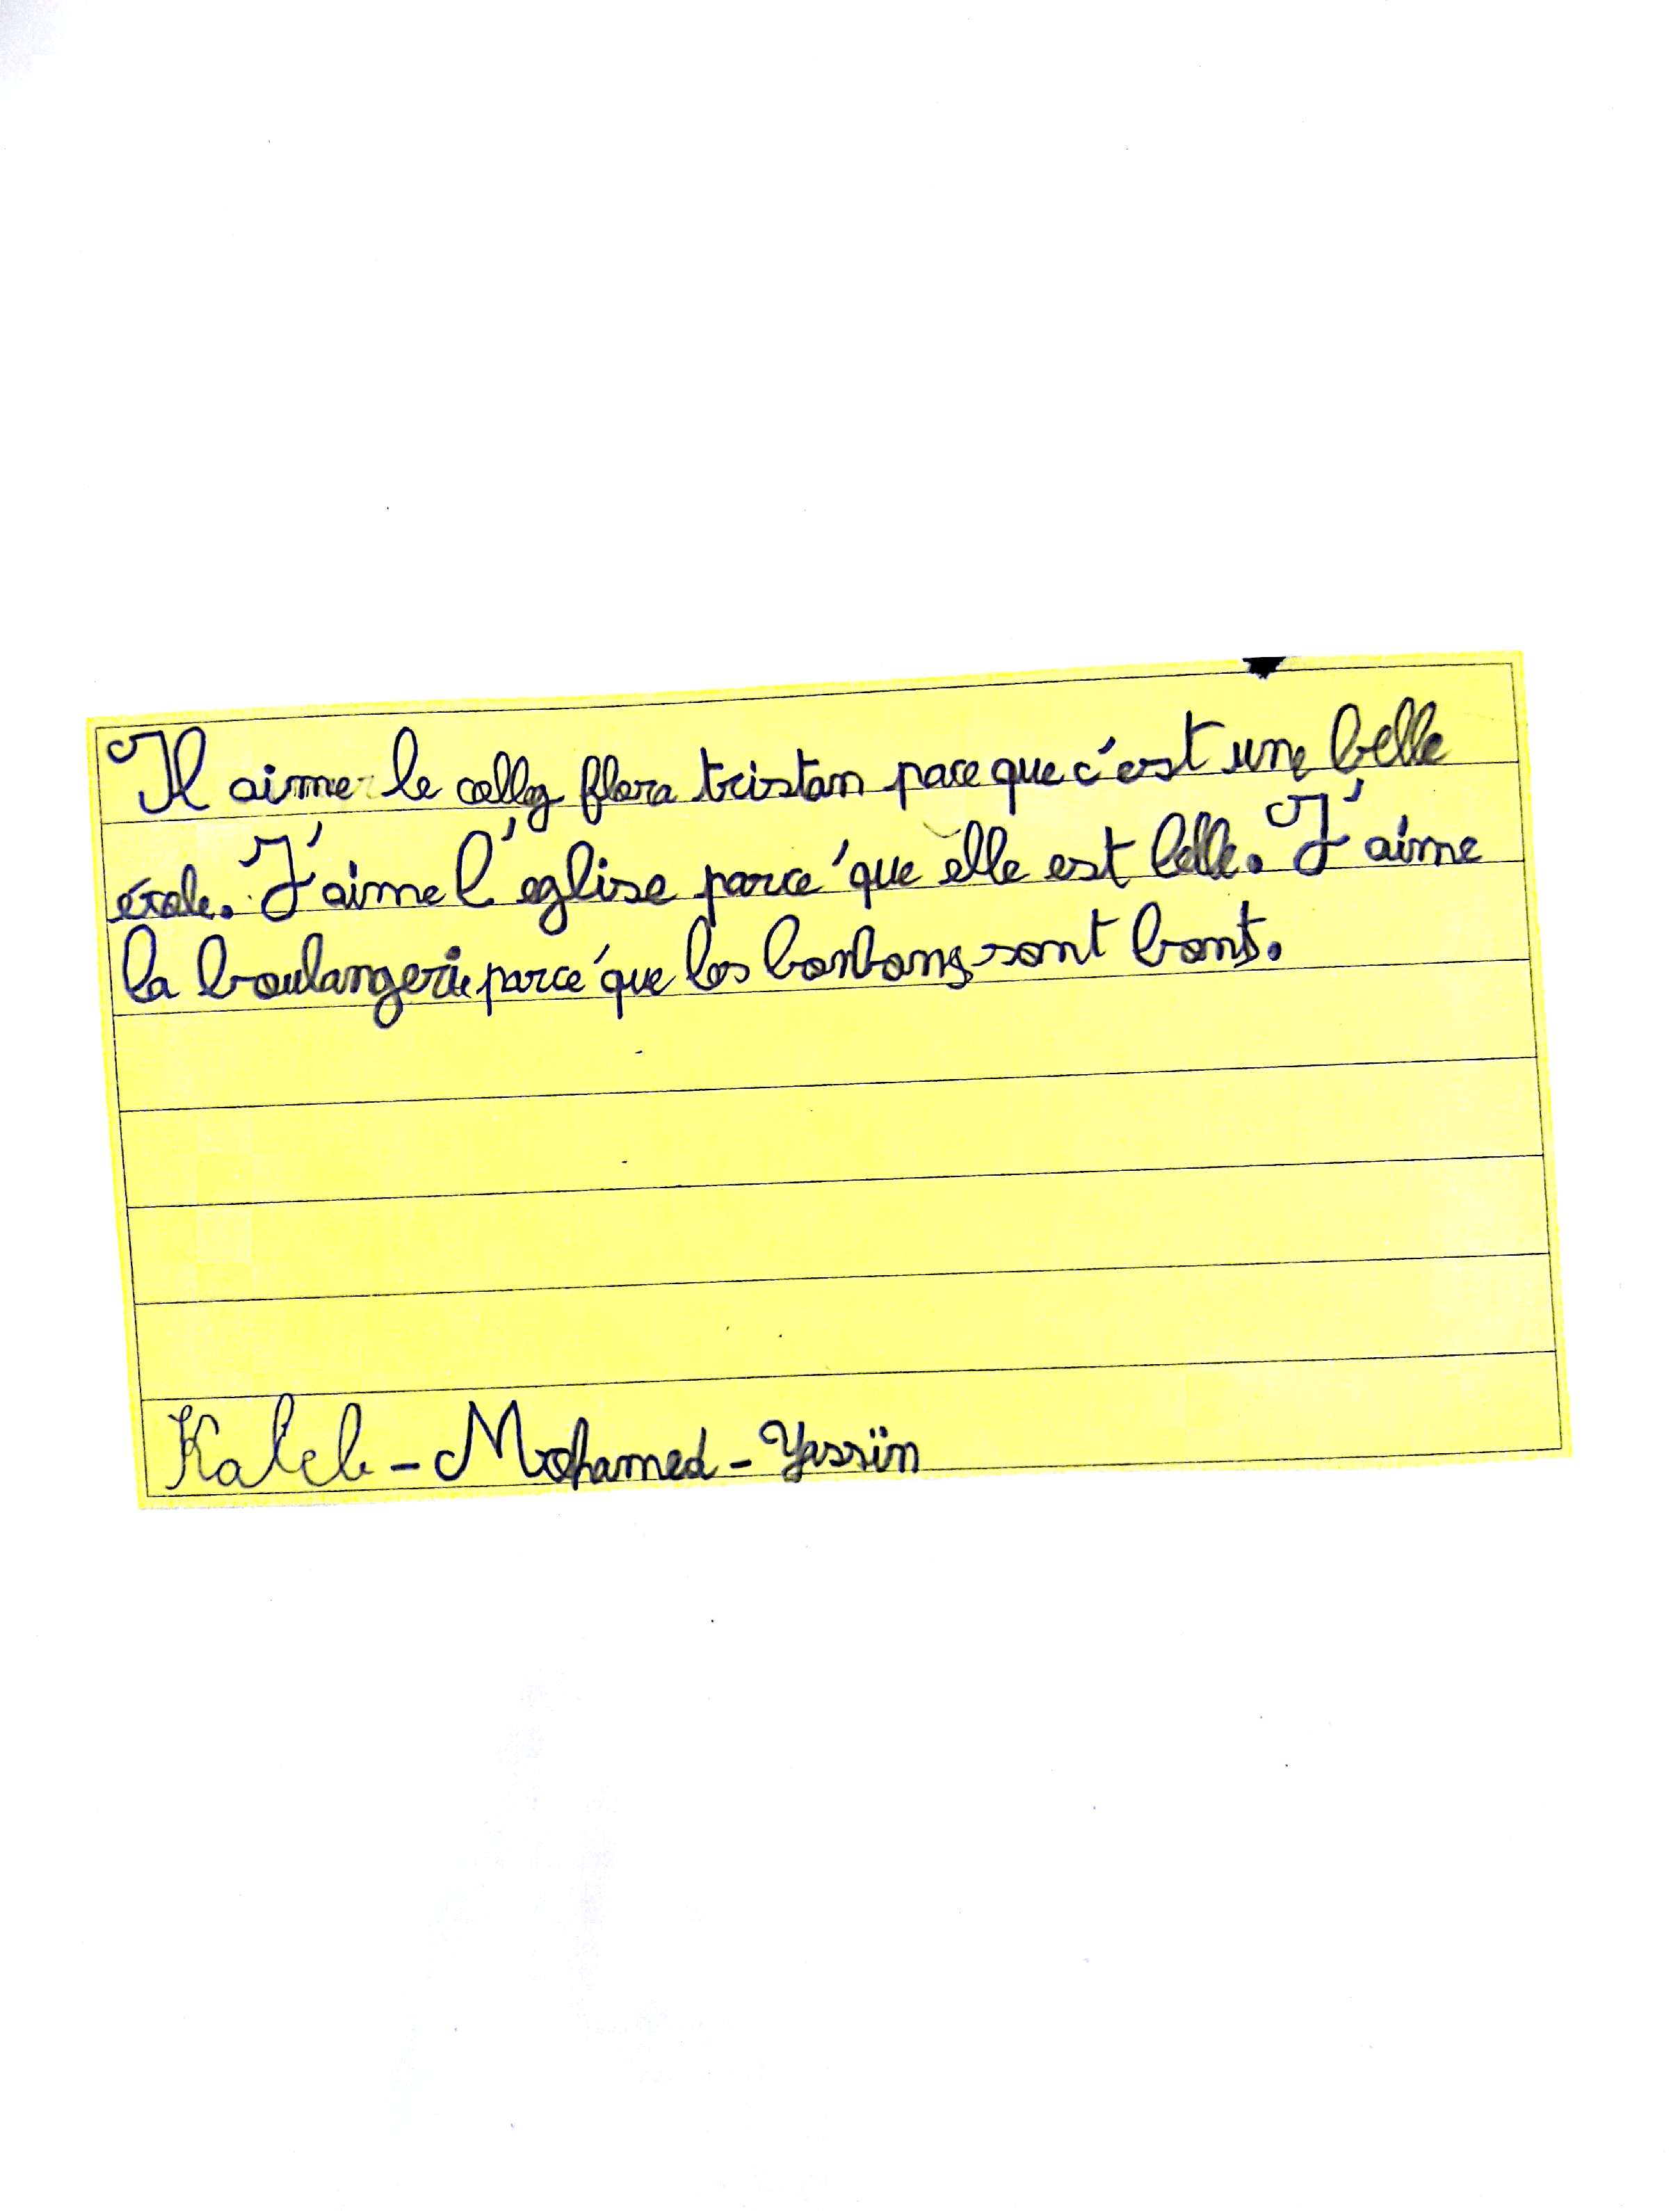 Il aime le colleg flora tristan parce que c'est une belle
école. J'aime l'eglise parce 'que elle est belle. J'aime
la boulangerie parce 'que les bonbons sont bonts.
Kaleb - Mohamed - Yassïn